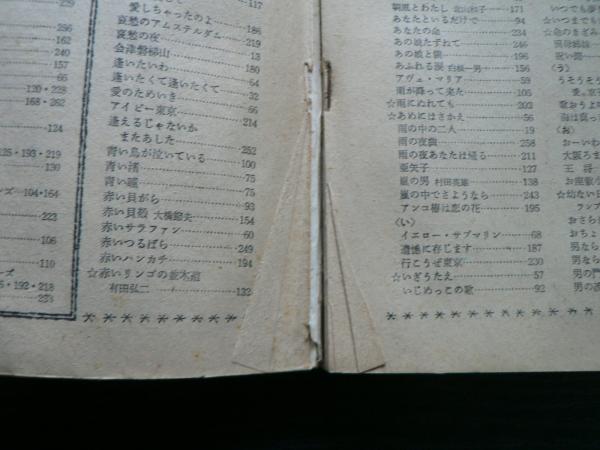 229
296
162
240
157
66
120・228
168・262
124
125・193・219
130
ンズ…104・164
223
106
110
ーズ
・192・218
233
117
愛しちゃったのよ……186
哀愁のアムステルダム…219
哀愁の夜……26
会津磐梯山……13
逢いたいわ……180
逢いたくて逢いたくて……64
愛のためいき……32
アイビー東京……66
逢えるじゃないか……214
またあした……252
青い鳥が泣いている……100
青い渚……75
青い瞳……75
赤い貝がら……93
赤い貝殻 大橋節夫……154
赤いサラファン……60
赤いつるばら……249
赤いハンカチ……194
☆赤いリンゴの並木道
有田弘二……132
朝風とわたし 北山和子……171
あなたといるだけで……94
あなたの命……234
あの娘たずねて……246
あの娘と僕……196
あふれる涙 白根一男……156
アヴェ・マリア……59
雨が降って来た……105
☆雨にぬれても……203
☆あめにはさかえ……56
雨の中の二人……19
雨の夜曲……258
雨の夜あなたは帰る……211
亜矢子……127
嵐の男 村田英雄……138
嵐の中でさようなら……243
アンコ椿は恋の花……195
〈い〉
イエロー・サブマリン……68
遺憾に存じます……187
行こうぜ東京……230
☆いぎりうたえ……57
いじめっこの歌……92
いつでも夢
☆いつまでも
〈う〉
うそうそう
〈お〉
おーいわ
大阪ろま
王将
お座敷
☆幼ない
おさら
おちょ
男なら
男なら
男の